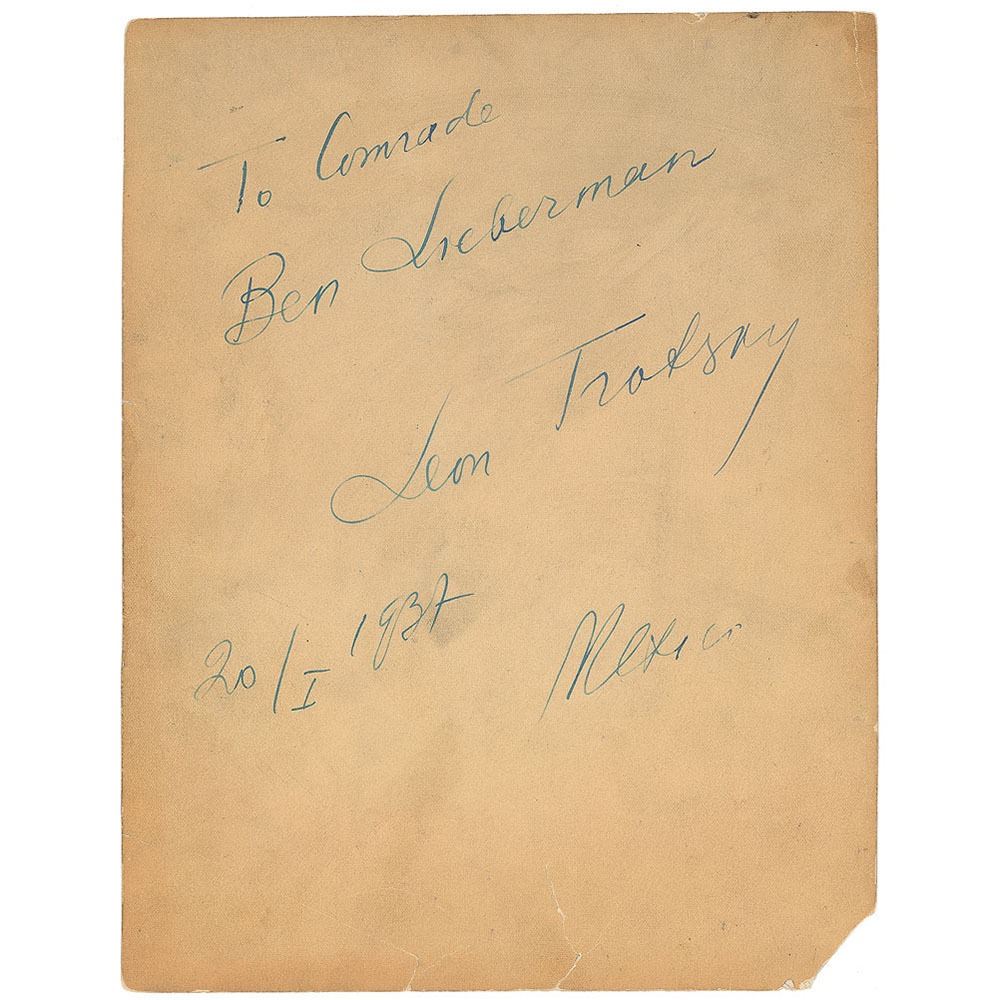 To Comrade
Ben Lieberman
Leon Trotsky
20/I 1937
Mexico